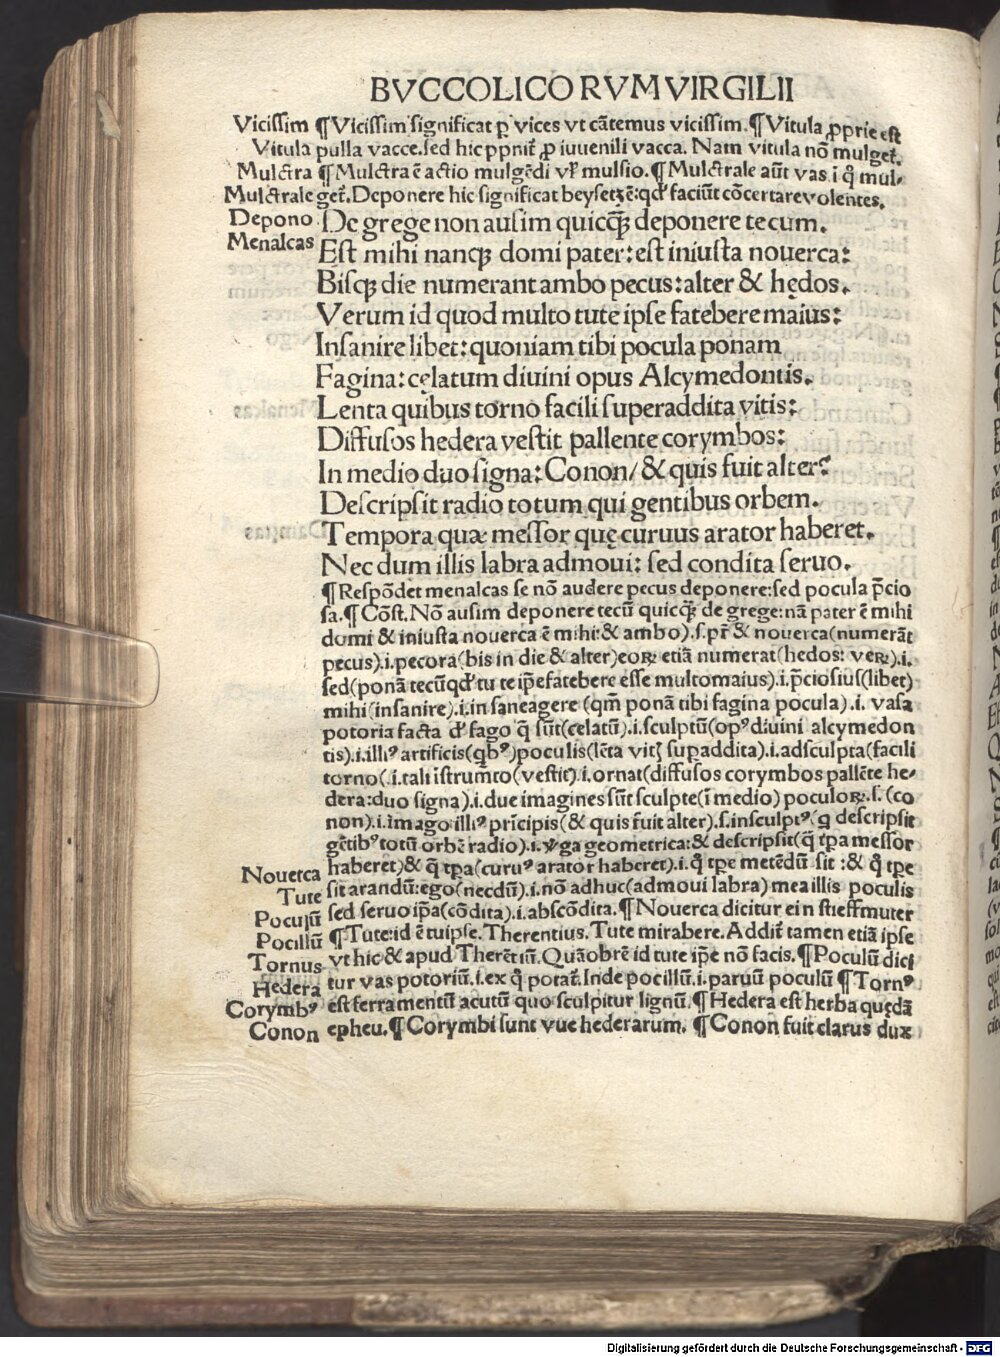 BVCCOLICORVM VIRGILII
Vicissim ¶Vicissim significat ꝑ vices vt cātemus vicissim. ¶Vitula ꝓprie est
Vitula pulla vacce. sed hic ppnit̄ ꝓ iuuenili vacca. Nam vitula nō mulget̄.
Mulctra ¶Mulctra ē actio mulgēdi vl' mulsio. ¶Mulctrale aūt vas .i q̄ mul-
Mulctrale get̄. Deponere hic significat beysetzē: qd' faciūt cōcertare volentes.
Depono De grege non ausim quicq̄ꝫ deponere tecum.
Menalcas Est mihi nancqꝫ domi pater: est iniusta nouerca:
Bisqꝫ die numerant ambo pecus: alter & hędos.
Verum id quod multo tute ipse fatebere maius:
Insanire libet: quoniam tibi pocula ponam
Fagina: cęlatum diuini opus Alcymedontis.
Lenta quibus torno facili superaddita vitis:
Diffusos hedera vestit pallente corymbos:
In medio duo signa: Conon/ & quis fuit alter?
Descripsit radio totum qui gentibus orbem.
Tempora quæ messor quę curuus arator haberet.
Nec dum illis labra admoui: sed condita seruo.
¶Respōdet menalcas se nō audere pecus deponere: sed pocula p̄cio
sa. ¶Cōst. Nō ausim deponere tecū quicq̄ꝫ de grege: nā pater ē mihi
domi & iniusta nouerca ē mihi: & ambo). s. pr̄ & nouerca (numerāt
pecus). i. pecora (bis in die & alter) eoꝝ etiā numerat (hedos: veꝝ). i.
sed (ponā tecū qd' tu te ip̄e fatebere esse multo maius). i. p̄ciosius (libet)
mihi (insanire). i. insane agere (qm̄ ponā tibi fagina pocula). i. vasa
potoria facta d' fago q̄ sūt (celatū). i. sculptū (opꝰ diuini alcymedon
tis). i. illiꝰ artificis (qbꝰ) poculis (lēta vitꝫ supaddita). i. adsculpta (facili
torno (. i. tali īstrum̄to (vestit). i. ornat (diffusos corymbos pallēte he-
dera: duo signa). i. due imagines sūt sculpte (ī medio) poculoꝝ. s. (co
non). i. imago illiꝰ prīcipis (& quis fuit alter). s. insculptꝰ q descripsit
gētibꝰ totū orbē radio). i. v̓ga geometrica: & descripsit (q̄ tp̄a messor
haberet) & q̄ tp̄a (curuꝰ arator haberet). i. q̄ tp̄e metēdū sit: & q̄ tp̄e
Nouerca sit arandū: ego (necdū). i. nō adhuc (admoui labra) mea illis poculis
Tute sed seruo ip̄a (cōdita). i. abscōdita. ¶Nouerca dicitur ein stieffmuter
Poculū ¶Tute: id ē tuipse. Therentius. Tute mirabere. Addit̄ tamen etiā ipse
Pocillū vt hic & apud Therētiū. Quāobrē id tute ip̄e nō facis. ¶Poculū dici
Tornus tur vas potoriū. i. ex q̄ potat̄. Inde pocillū. i. paruū poculū ¶Tornꝰ
Hedera est ferramentū acutū quo sculpitur lignū. ¶Hedera est herba quędā
Corymbꝰ epheu. ¶Corymbi sunt vue hederarum. ¶Conon fuit clarus dux
Conon